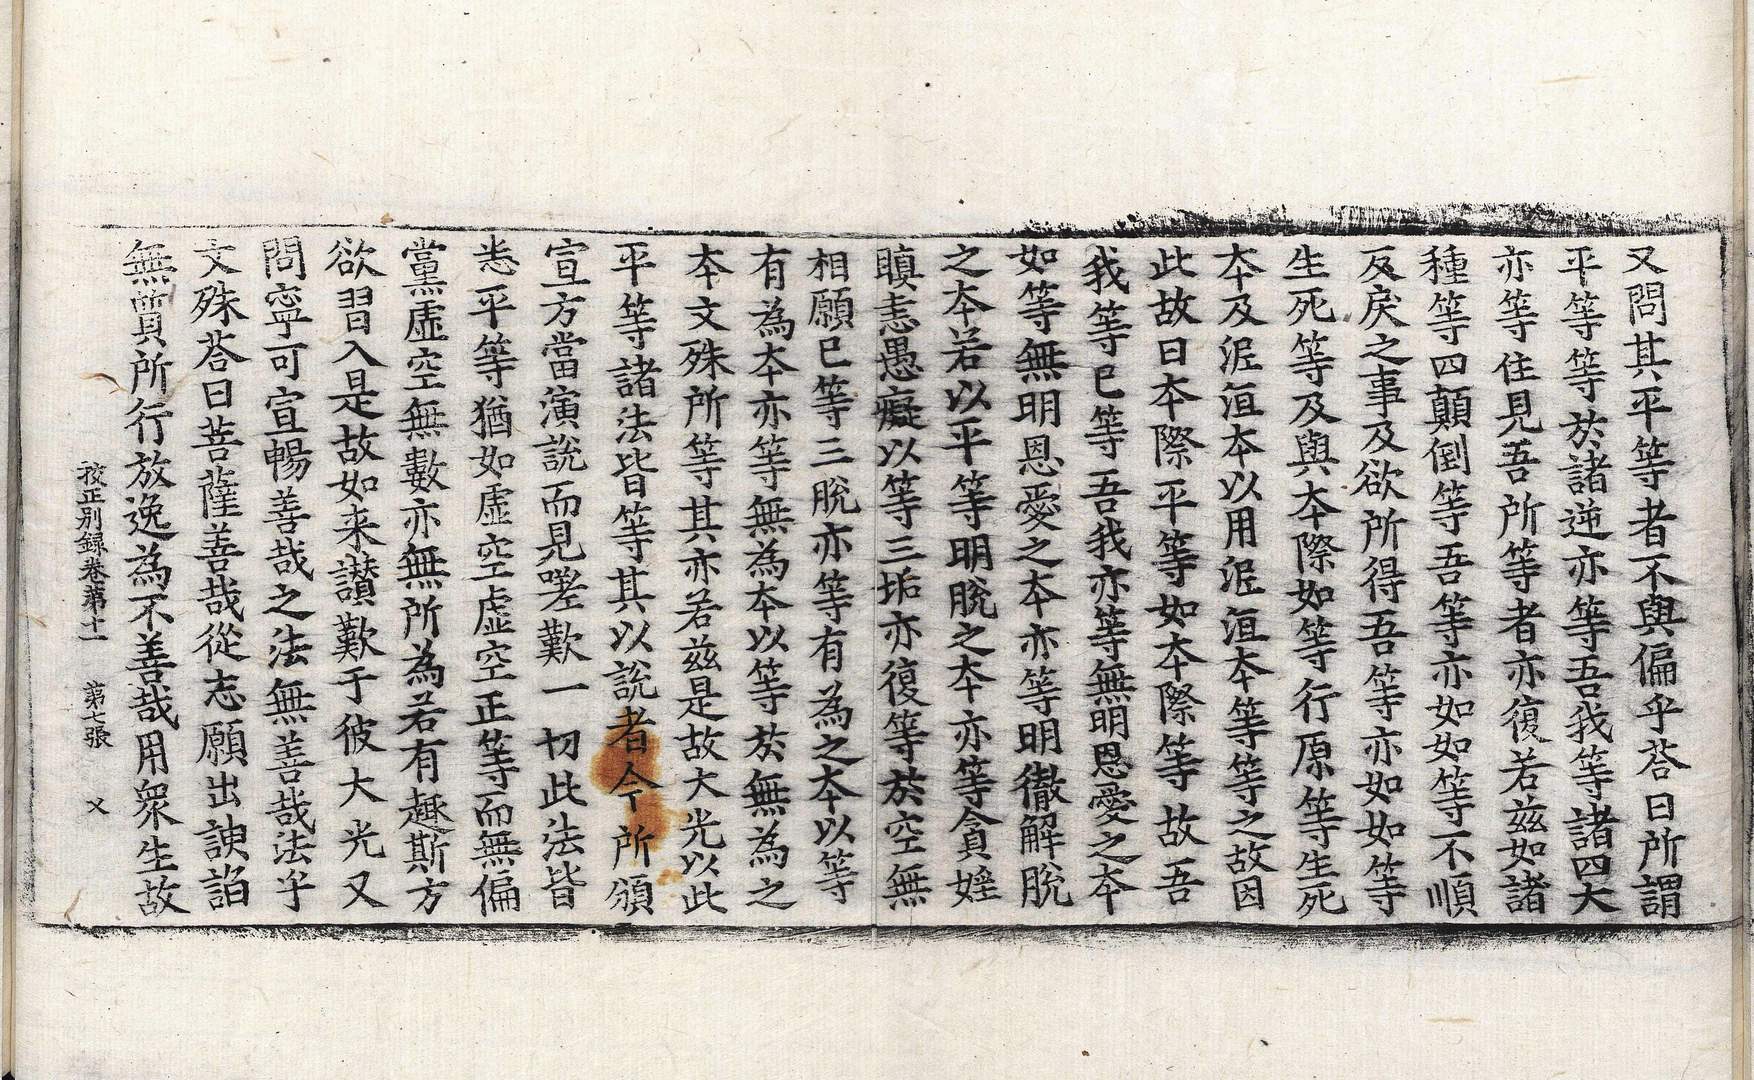 又問其平等者不與偏乎荅曰所謂
平等等於諸逆亦等吾我等諸四大
亦等住見吾所等者亦復若兹如諸
種等四顛倒等吾等亦如如等不順
反戾之事及欲所得吾等亦如如等
生死等及與本際如等行原等生死
本及泥洹本以用泥洹本等等之故因
此故曰本際平等如本際等故吾
我等已等吾我亦等無明恩愛之本
如等無明恩愛之本亦等明徹解脫
之本若以平等明脫之本亦等貪婬
瞋恚愚癡以等三垢亦復等於空無
相願已等三脫亦等有為之本以等
有為本亦等無為本以等於無為之
本文殊所等其亦若兹是故大光以此
平等諸法皆等其以說者今所頒
宣方當演說而見嗟歎一切此法皆
恙平等猶如虛空虛空正等而無偏
黨虛空無數亦無所為若有趣斯方
欲習入是故如来讃歎于彼大光又
問寧可宣暢善哉之法無善哉法乎
文殊荅曰菩薩善哉從志願出諛諂
無質所行放逸為不善哉用衆生故
挍正别録卷第十一 第七張 乂